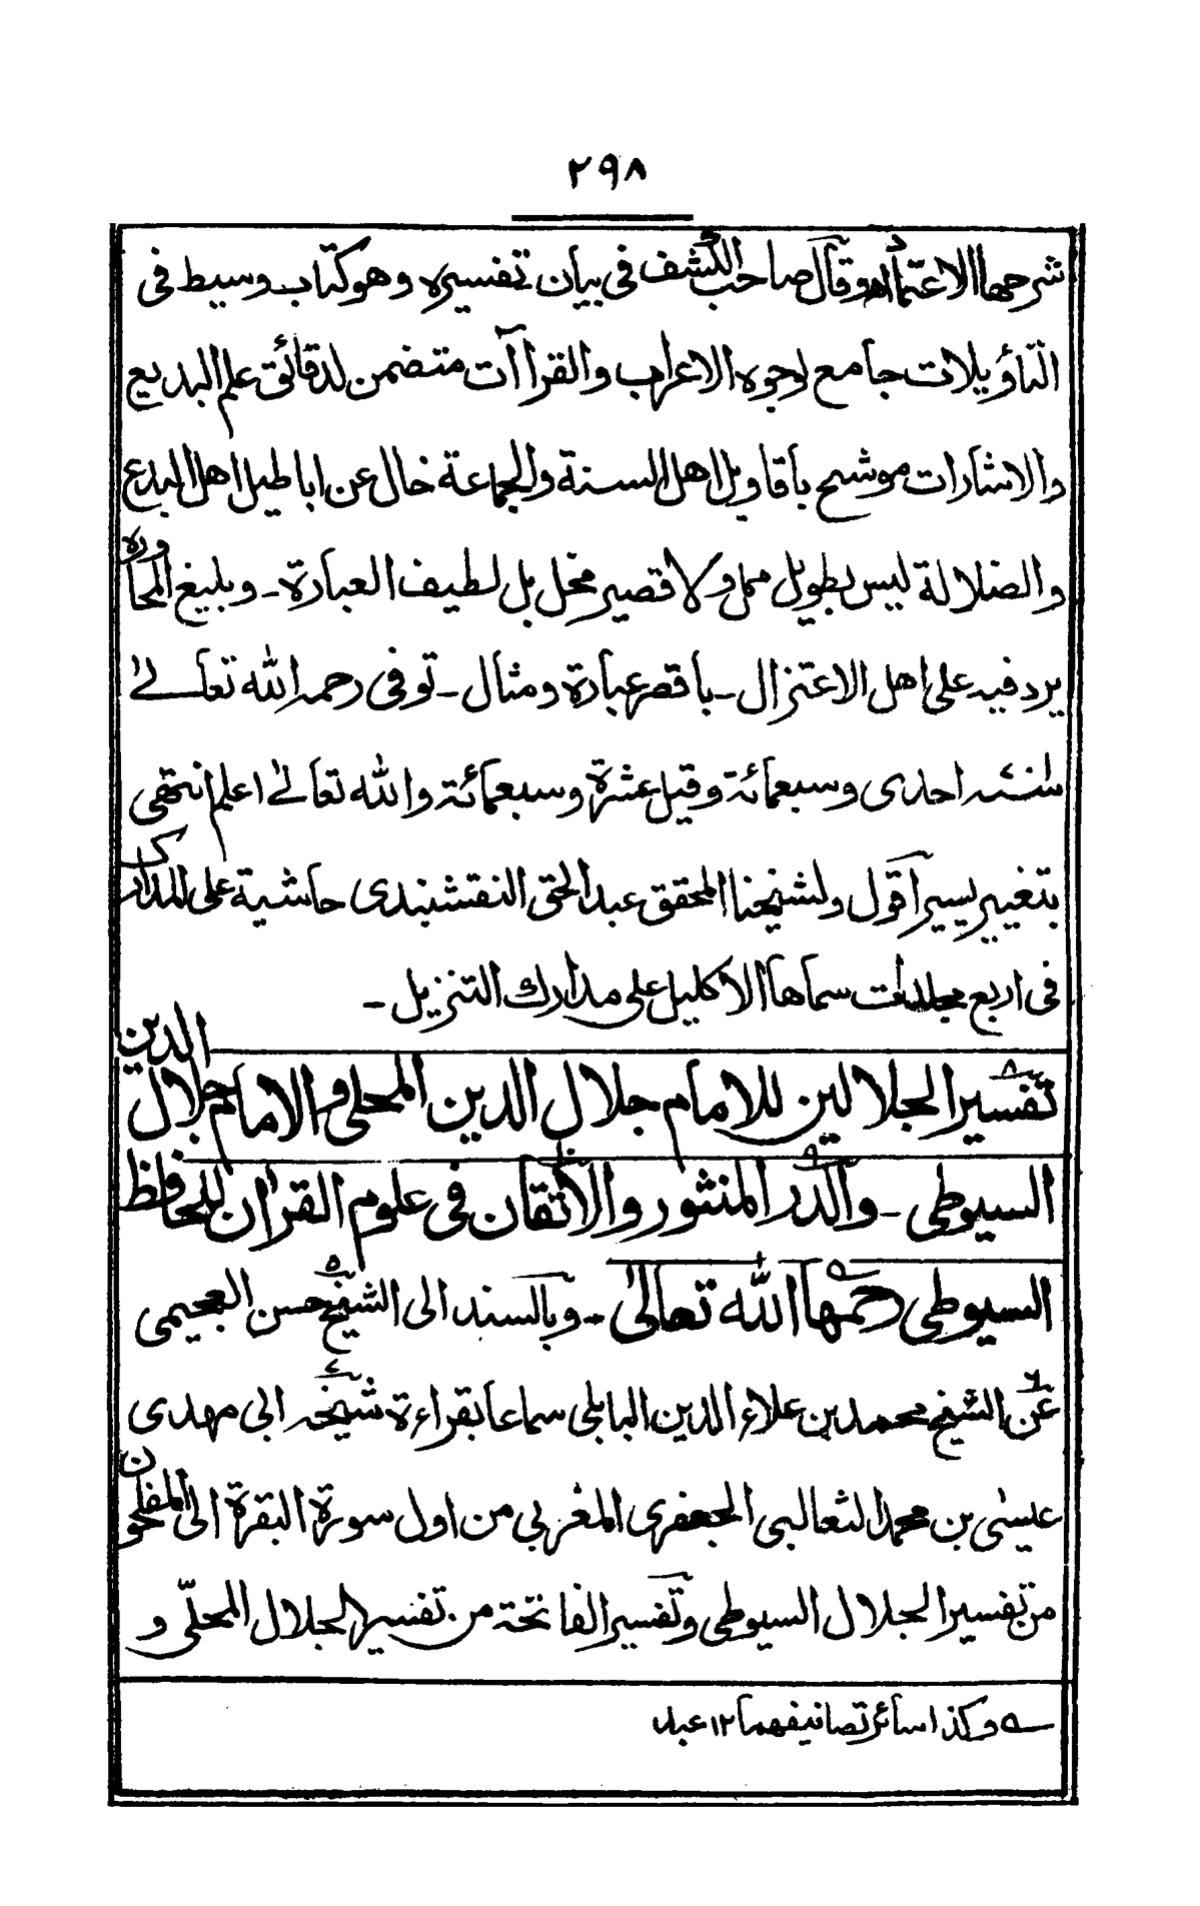 ٢٩٨
شرحهما الاعتماد اه وقال صاحب الكشف في بيان تفسيره وهو كتاب وسيط في
التأويلات جامع لوجوه الاعراب والقراآت متضمن لدقائق علم البديع
والاشارات موشح بأقاويل اهل السنة والجماعة خال عن اباطيل اهل البدع
والضلالة ليس بطويل ممل ولا قصير مخل بل لطيف العبارة ـ وبليغ المحاوره
يرد فيه على اهل الاعتزال ـ باقصر عبارة ومثال ـ توفى رحمه الله تعالىٰ
احدى وسبعمائة وقيل عشرة وسبعمائة والله تعالىٰ اعلم انتهى
بتغيير يسير اقول ولشيخنا المحقق عبد الحق النقشبندى حاشية على المدارك
فى اربع مجلدات سماها الاكليل على مدارك التنزيل ـ
تفسير الجلالين للامام جلال الدين المحلى والامام جلال الدين
السيوطى ـ والدر المنثور والاتقان فى علوم القران للحافظ
السيوطى رحمهما الله تعالىٰ ـ وبالسند الى الشيخ حسن العجيمى
عن الشيخ محمد بن علاء الدين البابلى سماعا بقراءة شيخه ابى مهدى
عيسىٰ بن محمد الثعالبى الجعفرى المغربى من اول سورة البقرة الى المفلحون
من تفسير الجلال السيوطى وتفسير الفاتحة من تفسير الجلال المحلّى و
ے وكذا سائر تصانيفهما ١٢ عبد